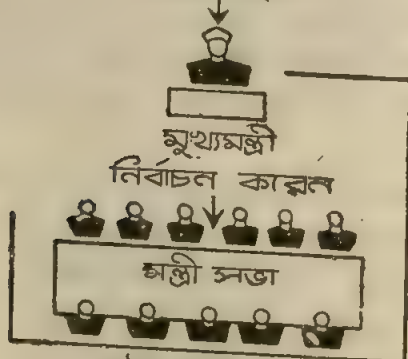 মুখ্যমন্ত্রী
নির্বাচন করেন
মন্ত্রী সভা